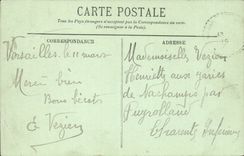 CARTE POSTALE
Tous les Pays étrangers n'acceptent pas la Correspondance au verso.
(Se renseigner à la Poste).
CORRESPONDANCE
ADRESSE
Versailles. le 11 mars
Merci bien
Bons
E Vezien
Mademoiselle Vezien
Henriette aux
de Nachamps par
Puyrolland
Charente Inférieure